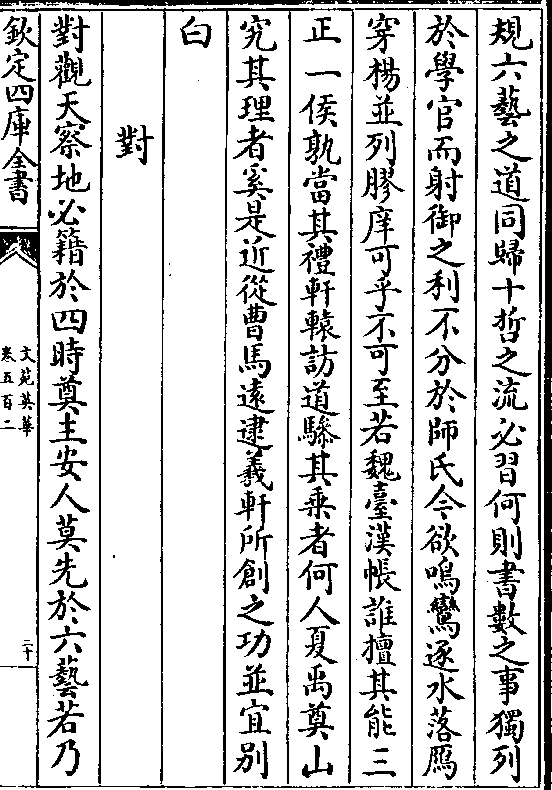 規六藝之道同歸十哲之流必習何則書數之事獨列
於學官而射御之利不分於師氏今欲鳴鸞逐水落鴈
穿楊並列膠庠可乎不可至若魏臺漢帳誰擅其能三
正一侯孰當其禮軒轅訪道驂其乘者何人夏禹奠山
究其理者奚是近從曹馬遠逮羲軒所創之功並宜别
白
對
對觀天察地必籍於四時奠主安人莫先於六藝若乃
欽定四庫全書
文苑英華
卷五百二
二十